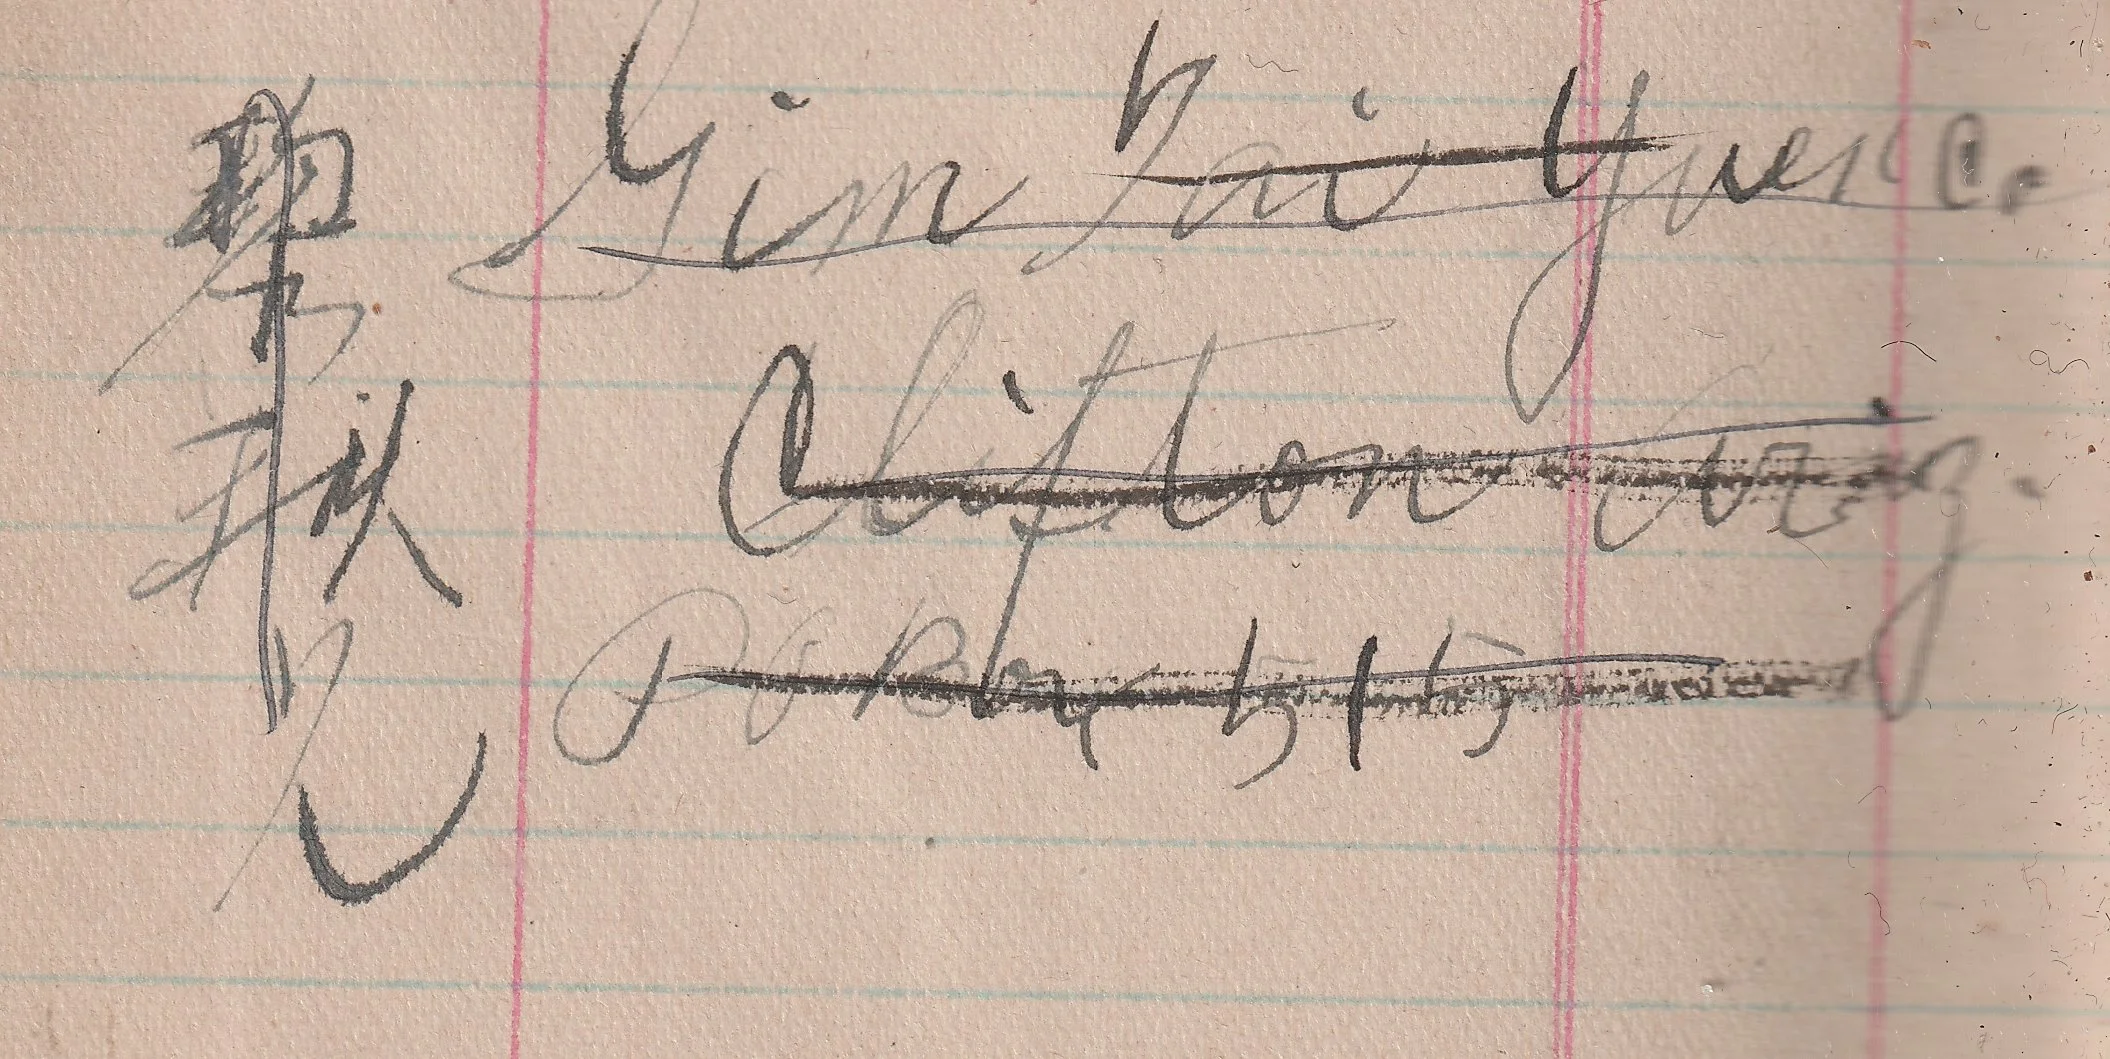 Gim Tai Yuene.
Clifton Ariz.
P O Box 515
黎秋